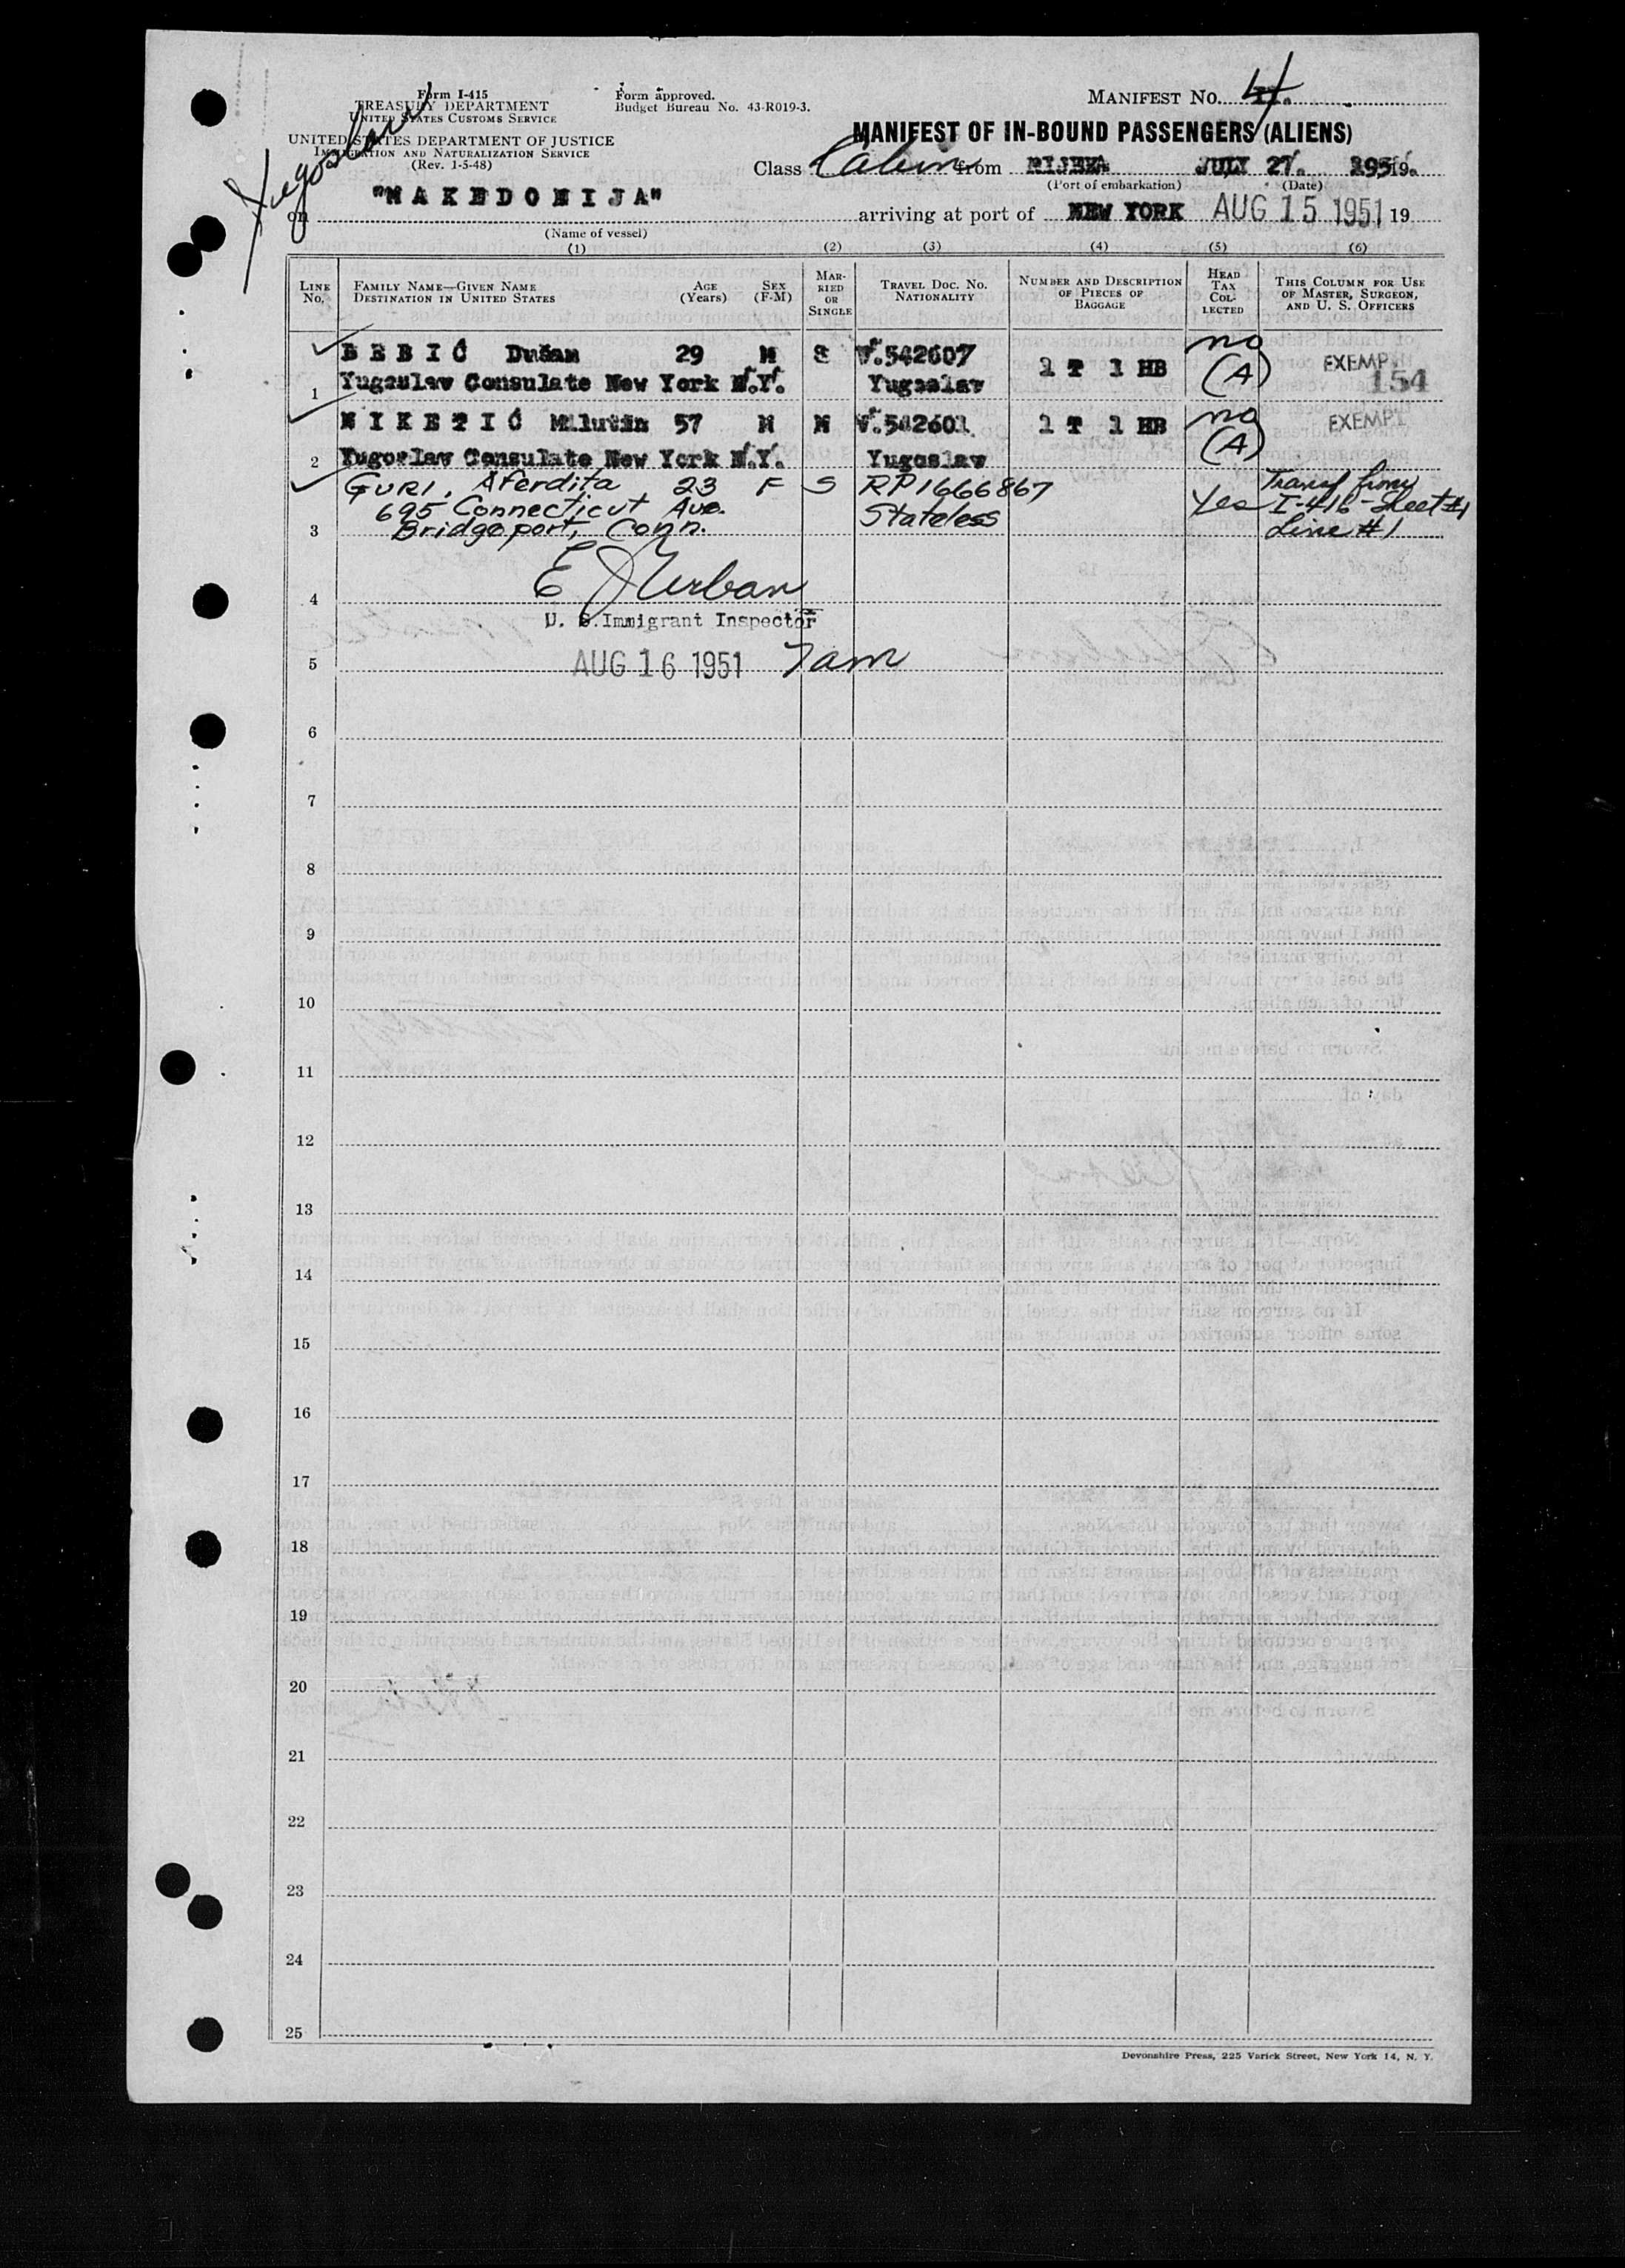 Form I-415
TREASURY DEPARTMENT
UNITED STATES CUSTOMS SERVICE
UNITED STATES DEPARTMENT OF JUSTICE
IMMIGRATION AND NATURALIZATION SERVICE
(Rev. 1-5-48)
Form approved.
Budget Bureau No. 43-R019-3.
Yugoslav
MANIFEST NO. 4
MANIFEST OF IN-BOUND PASSENGERS (ALIENS)
Class Cabin from RIJEKA JULY 27. 195 19.
(Port of embarkation) (Date)
on "MAKEDONIJA" arriving at port of NEW YORK AUG 15 1951 19
(Name of vessel)
(1) (2) (3) (4) (5) (6)
LINE NO. FAMILY NAME—GIVEN NAME DESTINATION IN UNITED STATES AGE (Years) SEX (F-M) MARRIED OR SINGLE TRAVEL DOC. NO. NATIONALITY NUMBER AND DESCRIPTION OF PIECES OF BAGGAGE HEAD TAX COLLECTED THIS COLUMN FOR USE OF MASTER, SURGEON, AND U. S. OFFICERS
BEBIĆ Dušan 29 M S V.542607 1 T 1 HB no EXEMPT
1 Yugoslav Consulate New York N.Y. Yugoslav (A) 154
NIKETIĆ Milutin 57 M M V.542601 1 T 1 HB no EXEMPT
2 Yugoslav Consulate New York N.Y. Yugoslav (A)
GURI, Aferdita 23 F S RP1666867 Yes Transf from
695 Connecticut Ave. Stateless I-416-Sheet #1
3 Bridgeport, Conn. Line #1
E J Urban
4
U. S. Immigrant Inspector
5 AUG 16 1951 7am
6
7
8
9
10
11
12
13
14
15
16
17
18
19
20
21
22
23
24
25
Devonshire Press, 225 Varick Street, New York 14, N. Y.